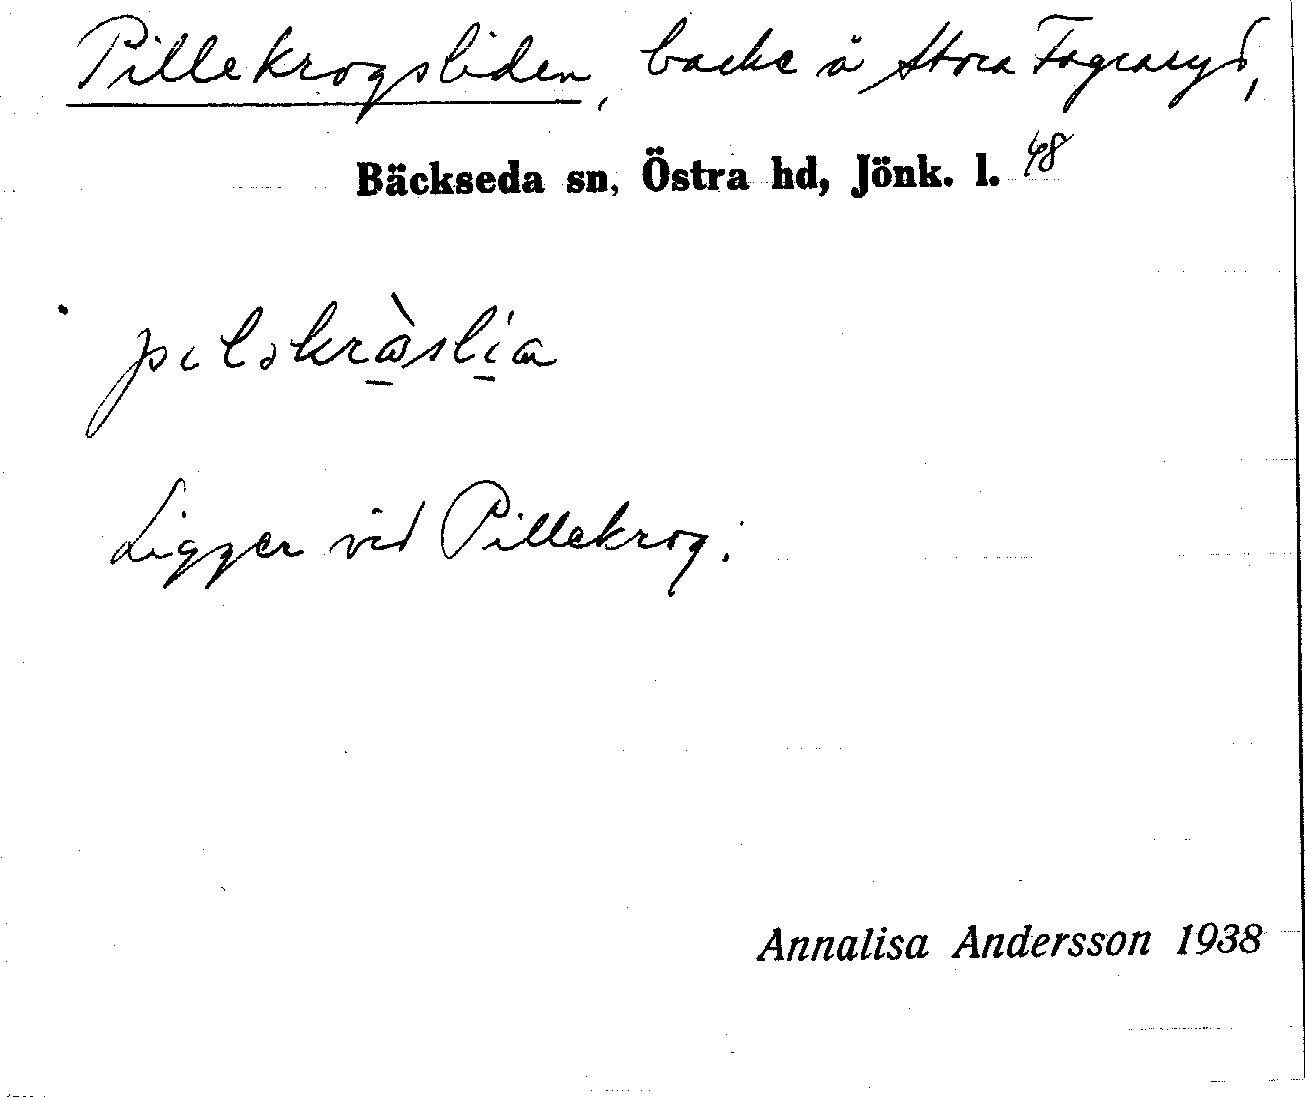 Pillekrogsliden, backe å Stora Fagraryd,
Bäckseda sn, Östra hd, Jönk. l. 48
Ligger vid Pillekrog.
Annalisa Andersson 1938